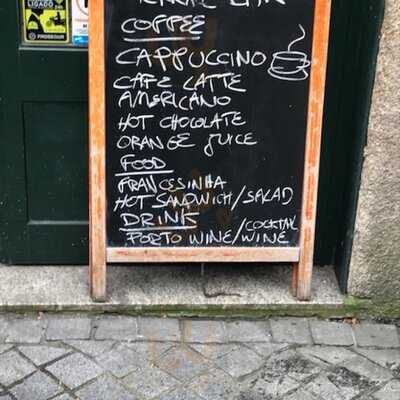 LIGADO 24H
PROSEGUR
COFFEE
CAPPUCCINO
CAFE LATTE
AMERICANO
HOT CHOCOLATE
ORANGE JUICE
FOOD
FRANCESINHA
HOT SANDWICH/SALAD
DRINK
PORTO WINE/WINE/COCKTAIL